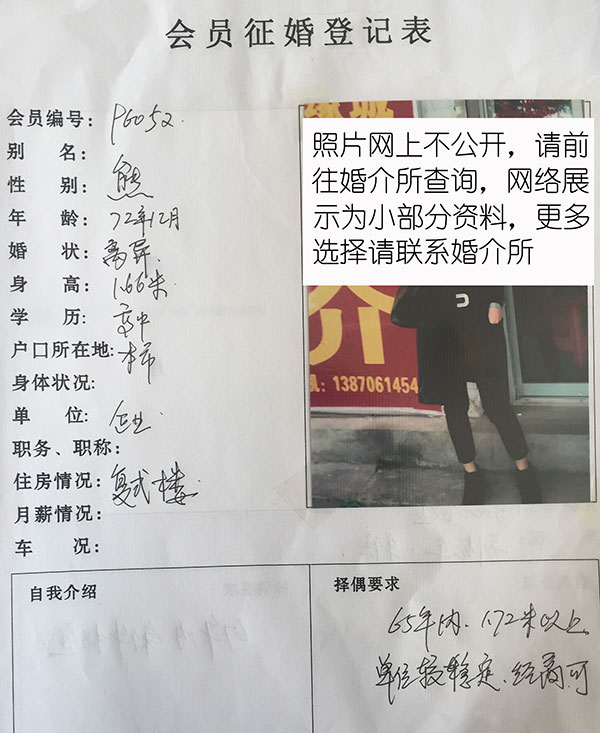 会员征婚登记表
会员编号: P6052
别 名:
性 别: 熊
年 龄: 72年12月
婚 状: 离异
身 高: 1.66米
学 历: 高中
户口所在地: 本市
身体状况:
单 位: 企业
职务、职称:
住房情况: 复式楼
月薪情况:
车 况:
照片网上不公开，请前
往婚介所查询，网络展
示为小部分资料，更多
选择请联系婚介所
介
机: 1387061454
自我介绍
择偶要求
65年内. 1.72米以上
单位较稳定. 经商可